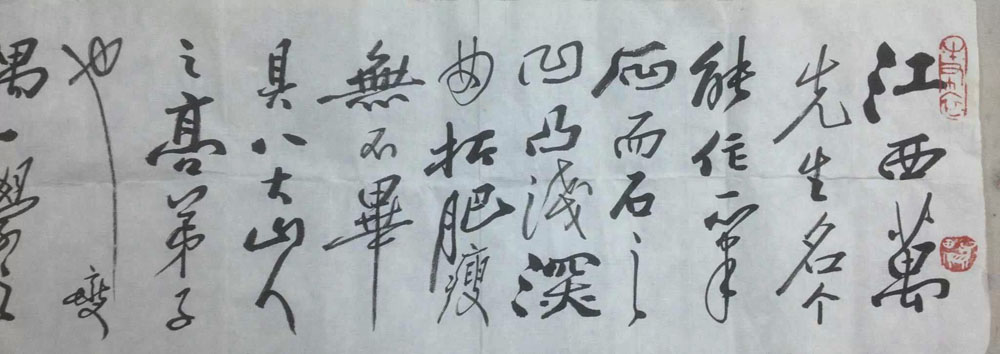 江西萬
先生名个
能作一筆
石而石之
凹凸淺深
曲折肥瘦
無不畢
具八大山人
之高弟子
也燮
一學